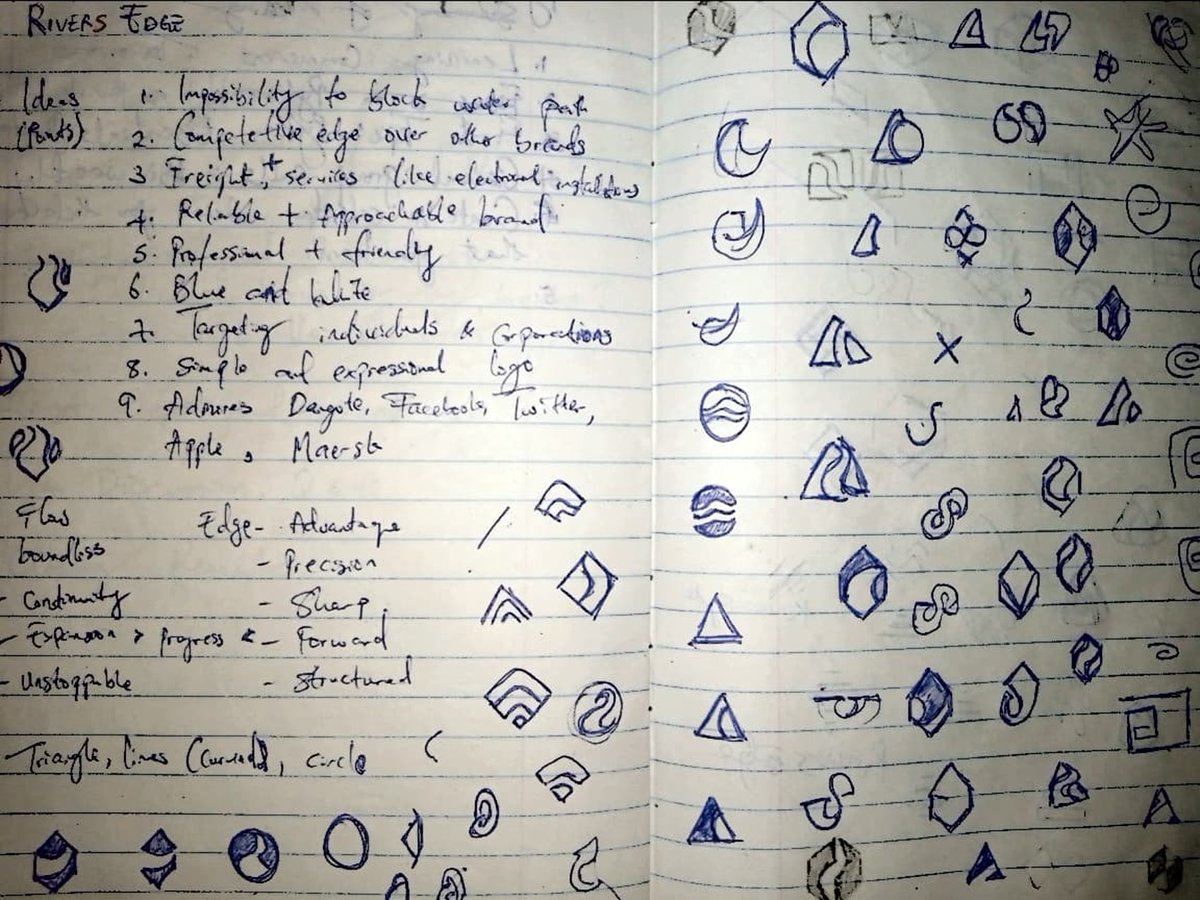 RIVERS EDGE
Ideas
(Points)
1. Impossibility to block water path
2. Competetive edge over other brands
3 Freight, + services like electrical installations
4. Reliable + Approachable brand
5. Professional + friendly
6. Blue and White
7. Targeting individuals & Corporations
8. Simple and expressional logo
9. Admires Dangote, Facebook, Twitter,
Apple, Maersk
Flow Edge - Advantage
boundless - Precision
- Continuity - Sharp
- Expansion > Progress < - Forward
- Unstoppable - Structured
- Triangle, lines (Curved), circle